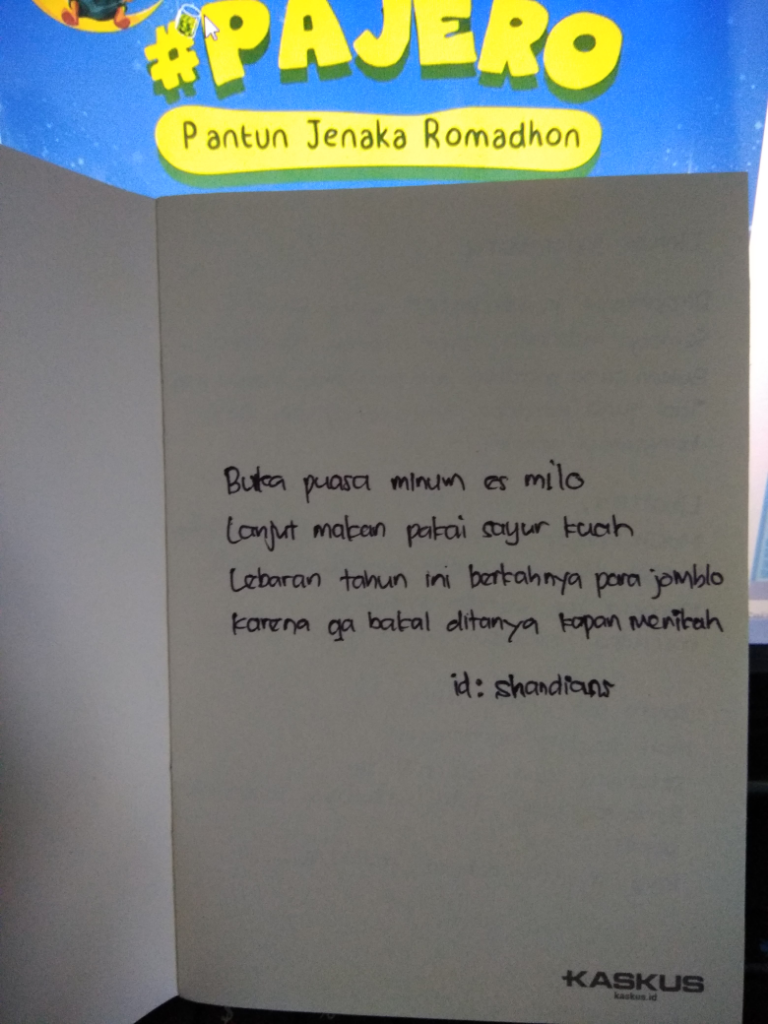 #PAJERO
Pantun Jenaka Romadhon
Buka puasa minum es milo
Lanjut makan pakai sayur kuah
Lebaran tahun ini berkahnya para jomblo
karena ga bakal ditanya kapan menikah
id: shandians
KASKUS
kaskus.id